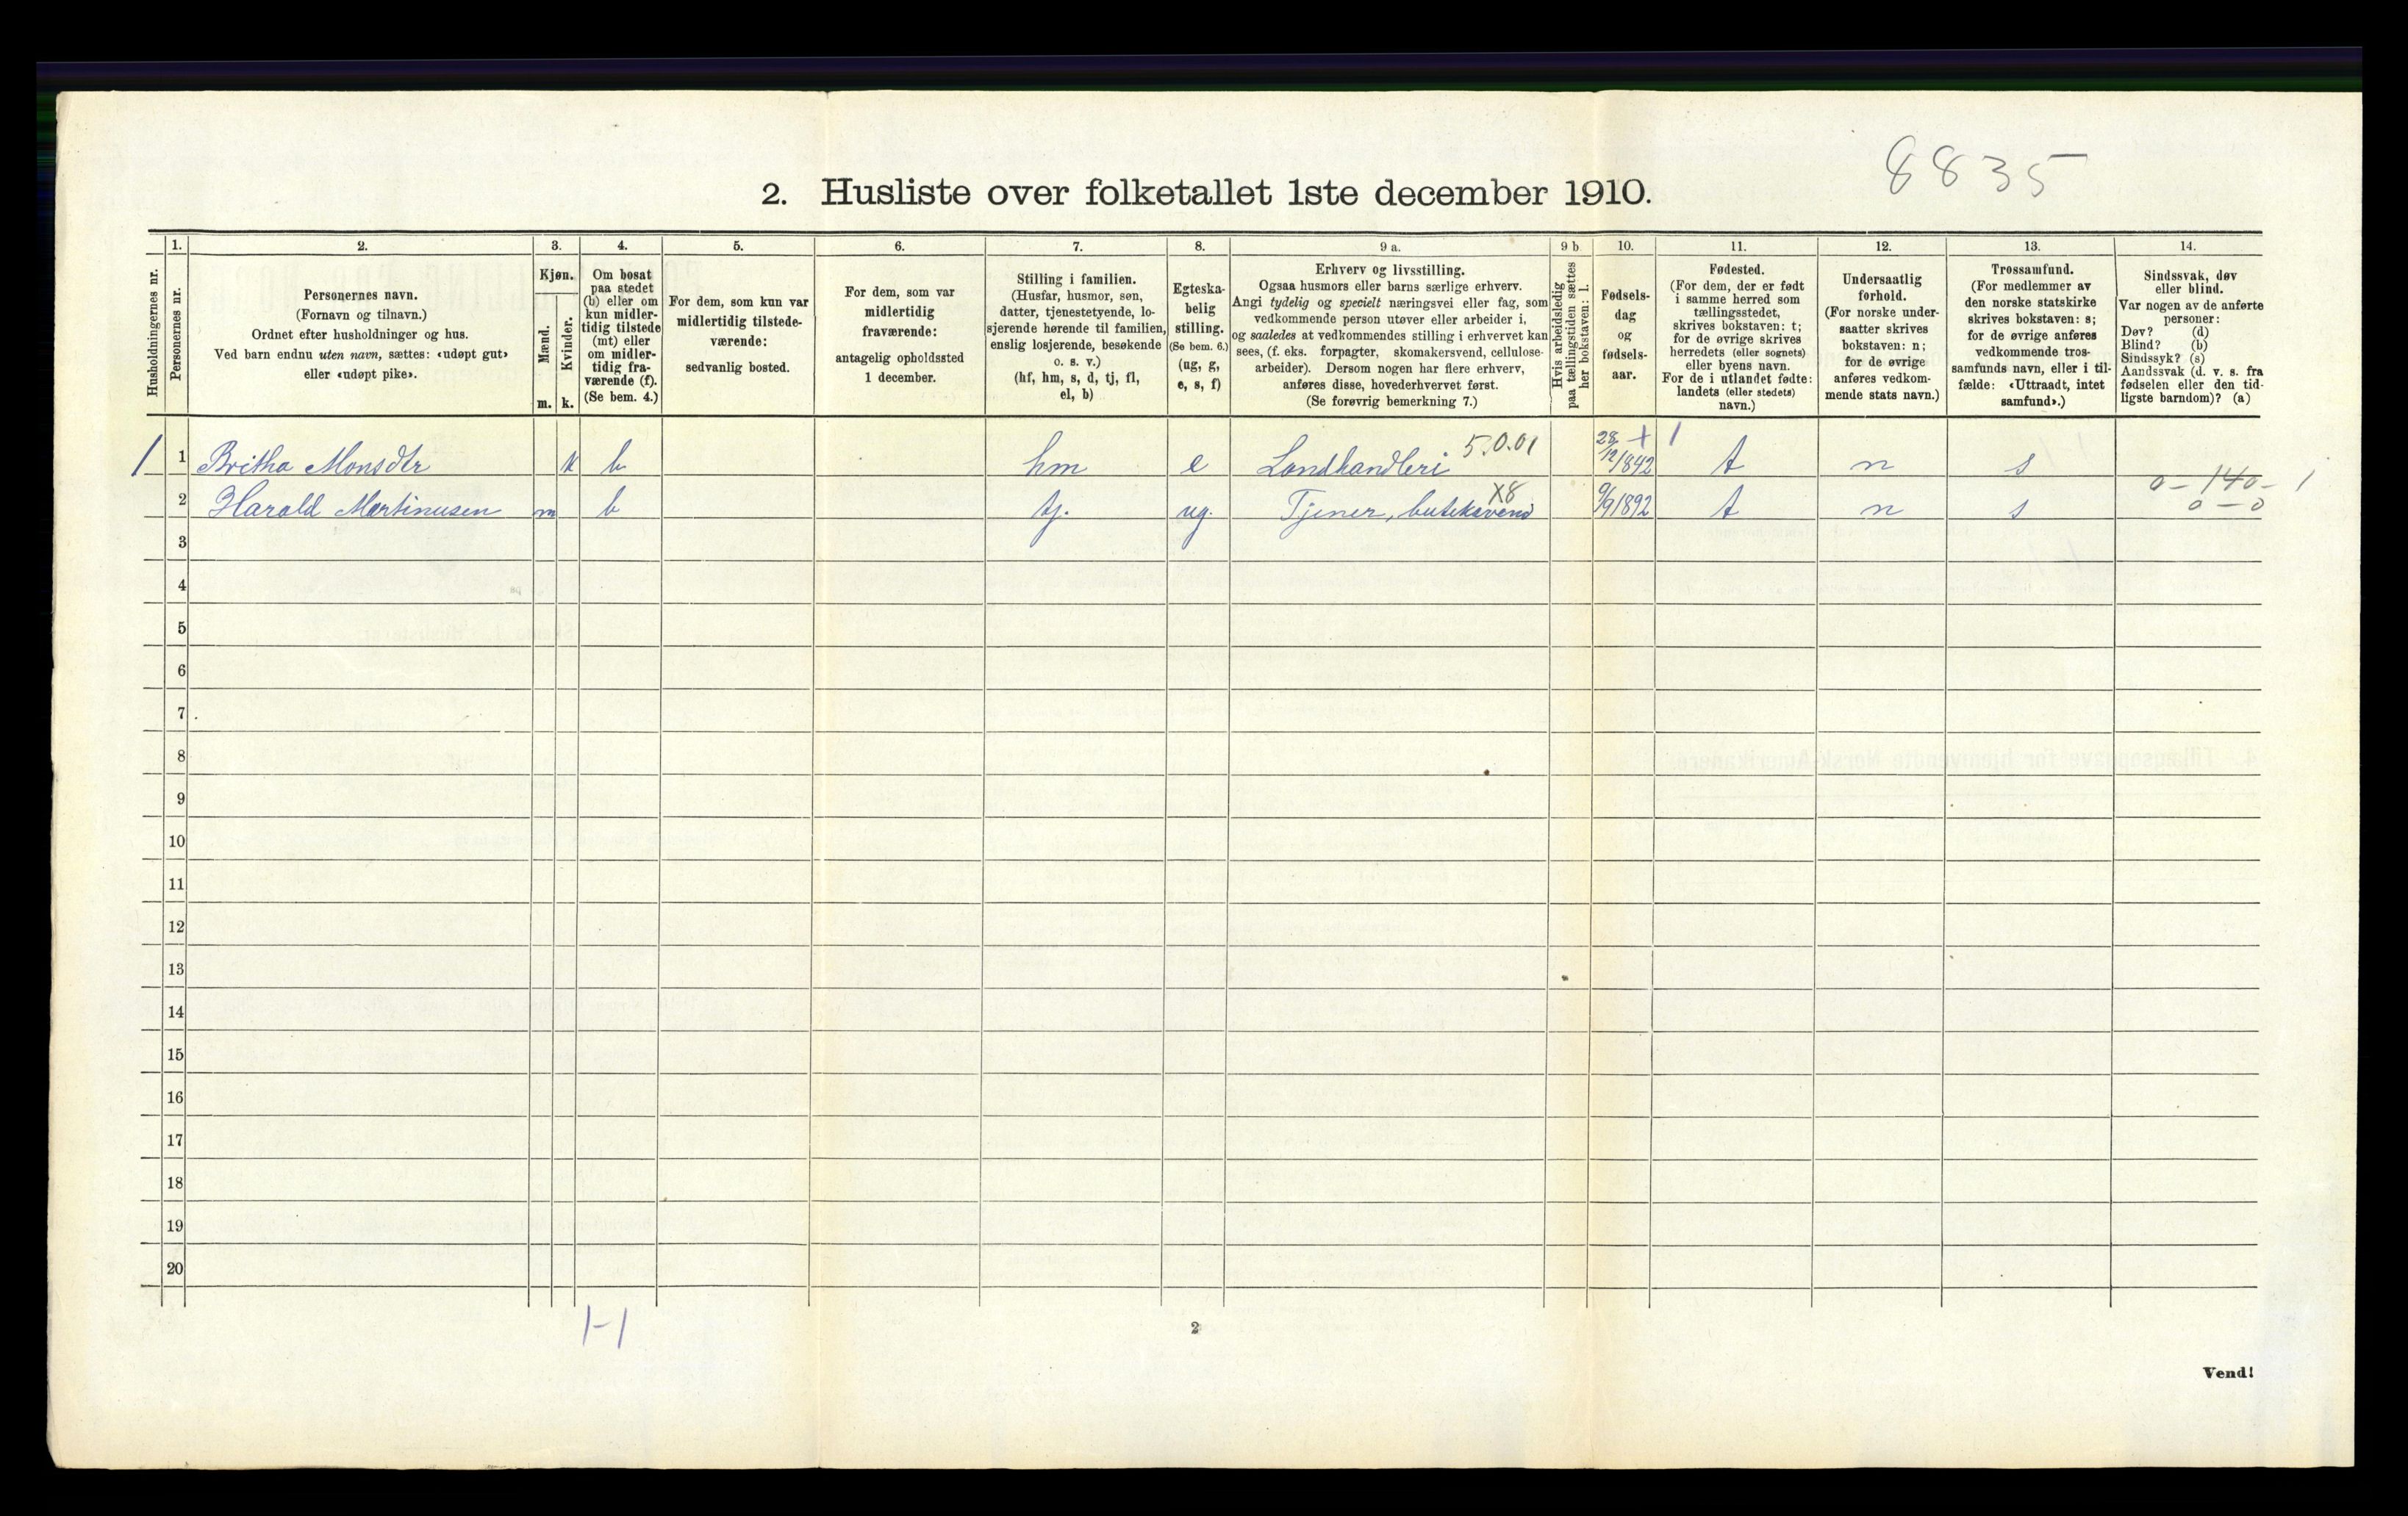 8835
2. Husliste over folketallet 1ste december 1910.
1. 2. 3. 4. 5. 6. 7. 8. 9 a. 9 b. 10. 11. 12. 13. 14.
Husholdningernes nr.
Personernes nr.
Personernes navn.
(Fornavn og tilnavn.)
Ordnet efter husholdninger og hus.
Ved barn endnu uten navn, sættes: «udøpt gut»
eller «udøpt pike».
Kjøn.
Mænd.
Kvinder.
m. k.
Om bosat
paa stedet
(b) eller om
kun midler-
tidig tilstede
(mt) eller
om midler-
tidig fra-
værende (f).
(Se bem. 4.)
For dem, som kun var
midlertidig tilstede-
værende:
sedvanlig bosted.
For dem, som var
midlertidig
fraværende:
antagelig opholdssted
1 december.
Stilling i familien.
(Husfar, husmor, søn,
datter, tjenestetyende, lo-
sjerende hørende til familien,
enslig losjerende, besøkende
o. s. v.)
(hf, hm, s, d, tj, fl,
el, b)
Egteska-
belig
stilling.
(Se bem. 6.)
(ug, g,
e, s, f)
Erhverv og livsstilling.
Ogsaa husmors eller barns særlige erhverv.
Angi tydelig og specielt næringsvei eller fag, som
vedkommende person utøver eller arbeider i,
og saaledes at vedkommendes stilling i erhvervet kan
sees, (f. eks. forpagter, skomakersvend, cellulose-
arbeider). Dersom nogen har flere erhverv,
anføres disse, hovederhvervet først.
(Se forøvrig bemerkning 7.)
Hvis arbeidsledig
paa tællingstiden sættes
her bokstaven: l.
Fødsels-
dag
og
fødsels-
aar.
Fødested.
(For dem, der er født
i samme herred som
tællingsstedet,
skrives bokstaven: t;
for de øvrige skrives
herredets (eller sognets)
eller byens navn.
For de i utlandet fødte:
landets (eller stedets)
navn.)
Undersaatlig
forhold.
(For norske under-
saatter skrives
bokstaven: n;
for de øvrige
anføres vedkom-
mende stats navn.)
Trossamfund.
(For medlemmer av
den norske statskirke
skrives bokstaven: s;
for de øvrige anføres
vedkommende tros-
samfunds navn, eller i til-
fælde: «Uttraadt, intet
samfund».)
Sindssvak, døv
eller blind.
Var nogen av de anførte
personer:
Døv? (d)
Blind? (b)
Sindssyk? (s)
Aandssvak (d. v. s. fra
fødselen eller den tid-
ligste barndom)? (a)
1 1 Britha Monsdtr k b hm e Landhandleri 5.0.01 28/12 1842 t n s
2 Harald Martinusen m b tj. ug. Tjener, butiksvend X8 9/9 1892 t n s
0 - 140 - 1
0 - 0
3
4
5
6
7
8
9
10
11
12
13
14
15
16
17
18
19
20
1-1
2
Vend!